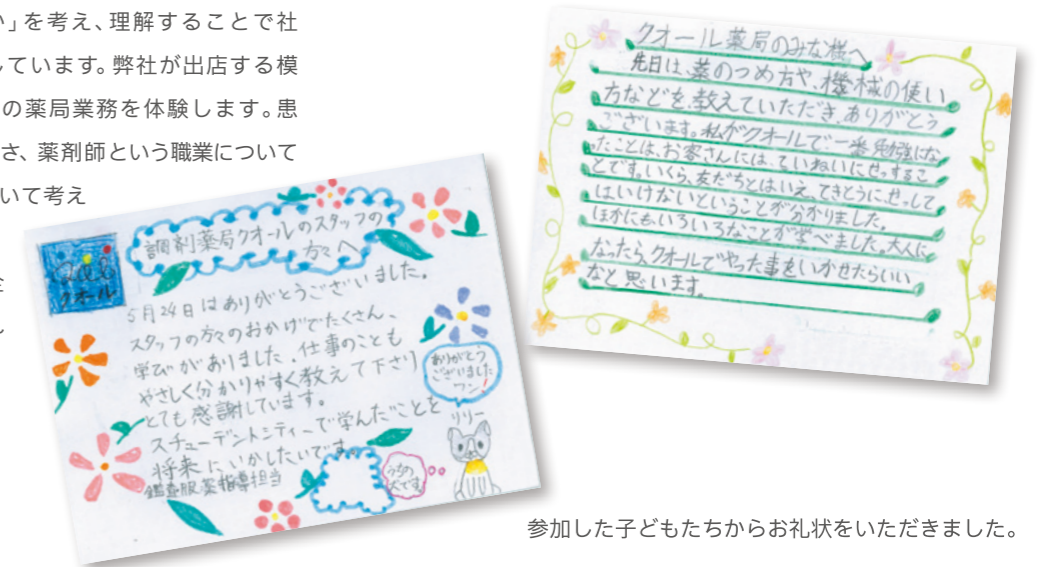 い」を考え、理解することで社
しています。弊社が出店する模
の薬局業務を体験します。患
さ、薬剤師という職業について
いて考え
調剤薬局クオールのスタッフの
方々へ
クオール
5月24日はありがとうございました。
スタッフの方々のおかげでたくさん、
学びがありました。仕事のことも
やさしく分かりやすく教えて下さり
とても感謝しています。
スチューデントシティーで学んだことを
将来にいかしたいです。
鑑査服薬指導担当
ありがとう
ございました
ワン!
リリー
うちの
犬です
クオール薬局のみな様へ
先日は、薬のつめ方や、機械の使い
方などを、教えていただき、ありがとう
ございます。私がクオールで一番勉強にな
ったことは、お客さんには、ていねいにせっするこ
とです。いくら、友だちとはいえ、てきとうに、せっして
はいけないということが分かりました。
ほかにもいろいろなことが学べました。大人に
なったら、クオールでやった事をいかせたらいい
なと思います。
参加した子どもたちからお礼状をいただきました。